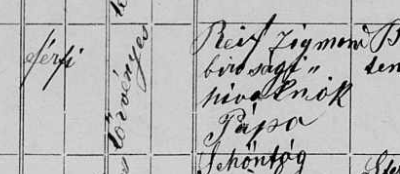 férfi
törvényes
Reisz Zsigmond
birosági
hivatnok
Pápa
Schöntág